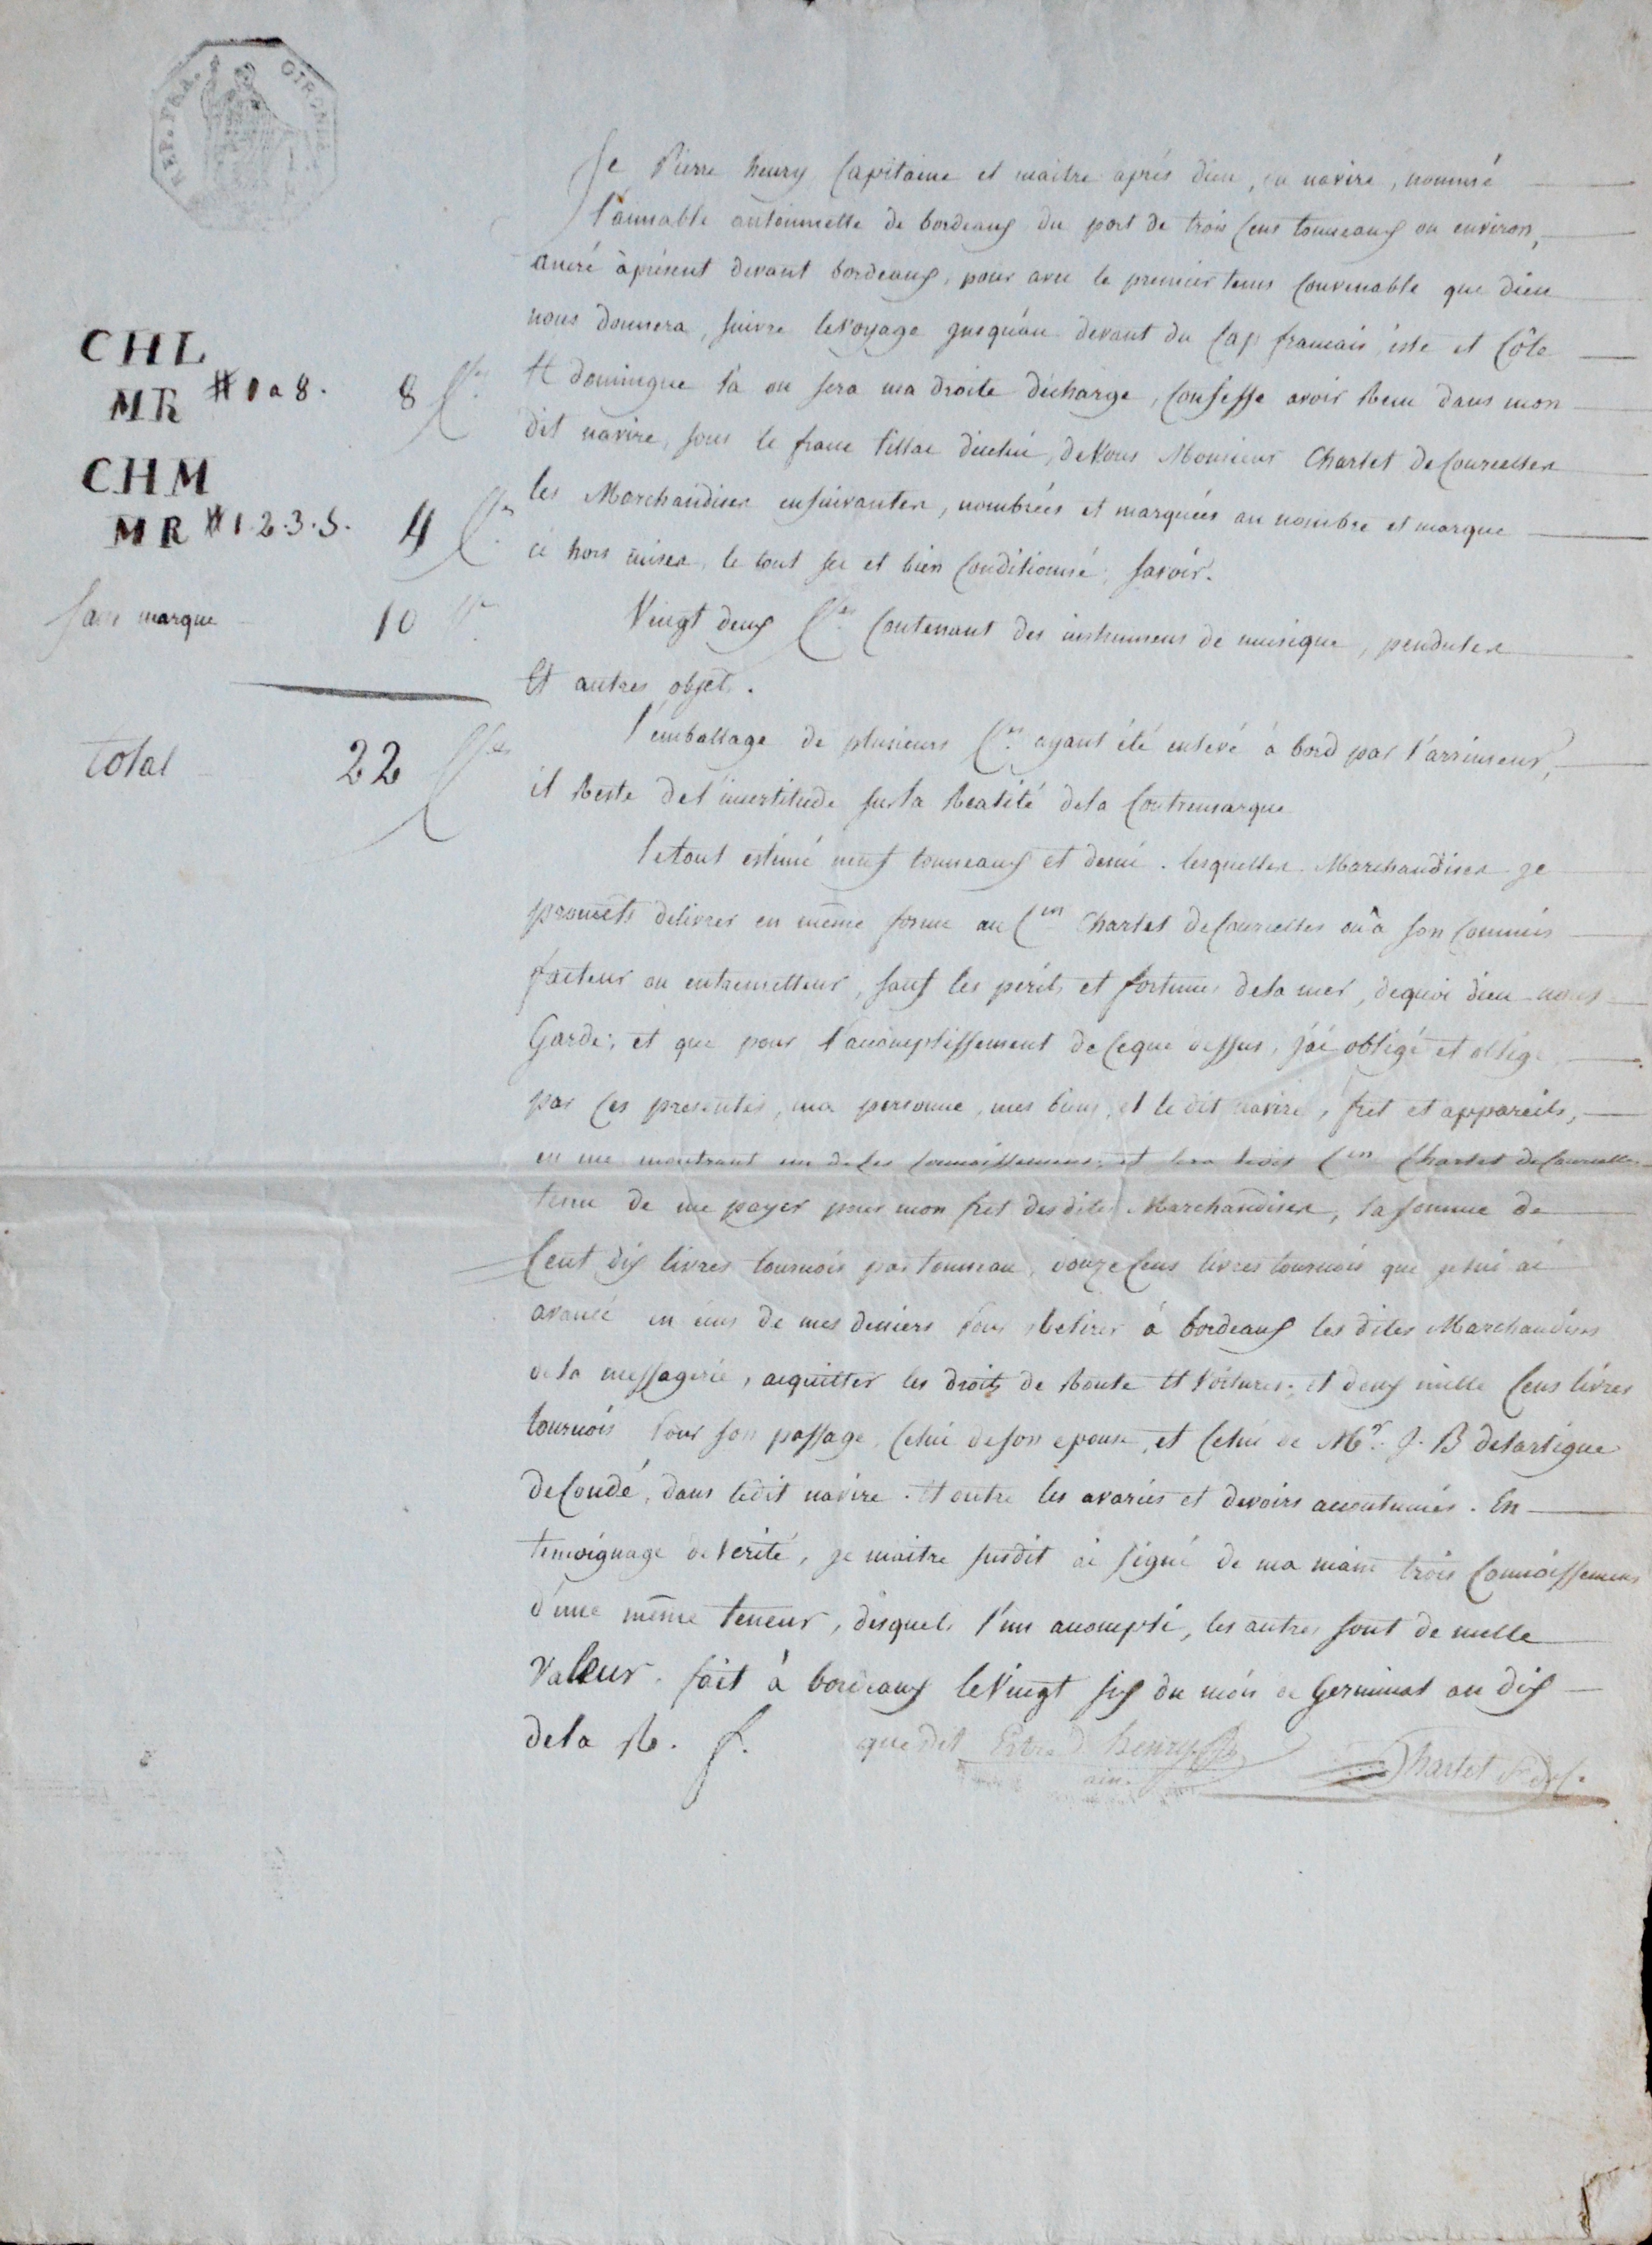 REP. FRA.
GIRONDE
CHL
MR # 1 a 8. 8 C.es
CHM
MR # 1. 2. 3. 5. 4 C.es
sans marque 10 C.es
total 22 C.es
Je Pierre henry Capitaine et maitre aprés dieu, du navire, nommé
l'aimable antoinnette de bordeaux du port de trois Cens tonneaux ou environ,
ancré àprésent devant bordeaux, pour avec le premier tems Convenable que dieu
nous donnera, suivre levoyage jusqu'au devant du Cap francais, isle et Côte
St domingue là ou sera ma droite décharge, Confesse avoir Recu dans mon
dit navire, sous le franc tillac dicelui, deVous Monsieur Charlet deCourcelles
les Marchandises ensuivantes, nombrées et marquées au nombre et marque
ci hors mises, le tout sec et bien Conditionné, savoir.
Vingt deux C.es Contenant des instrumens de musique, pendules
Et autres objets.
l'emballage de plusieurs C.es ayant été enlevé à bord par l'arrimeur,
il Reste del'incertitude surla Realité dela Contremarque
letout estimé neuf tonneaux et demi. lesquelles Marchandises je
promets delivrer en même forme au C.en Charlet deCourcelles ou à son Commis
facteur ou entremetteur, sauf les périls et fortunes dela mer, dequoi dieu nous
Garde; et que pour l'accomplissement de Ceque dessus, j'ai obligé et oblige
par Ces presentes, ma personne, mes biens, et le dit navire, fret et appareils,
en me montrant un deCes Connoissemens. et sera ledit C.en Charlet deCourcelles
tenu de me payer pour mon fret desdites Marchandises, la somme de
Cent dix livres tournois par tonneau, douzeCens livres tournois que je lui ai
avancé de mes deniers pour Retirer à bordeaux les dites Marchandises
dela messagerie, acquitter les droits de Route et Voitures; et deux mille Cens livres
tournois Pour son passage, Celui deson epouse, et Celui de Mr. J. B delartigue
deCondé, dans ledit navire. et outre les avaries et devoirs accoutumés. En
temoignage deVerité, je maitre susdit ai signé de ma main trois Connoissemens
d'une même teneur, desquels l'un accompli, les autres sont de nulle
Valeur. fait à bordeaux leVingt six du mois de Germinal an dix
dela R. f. que dit henry
Charlet